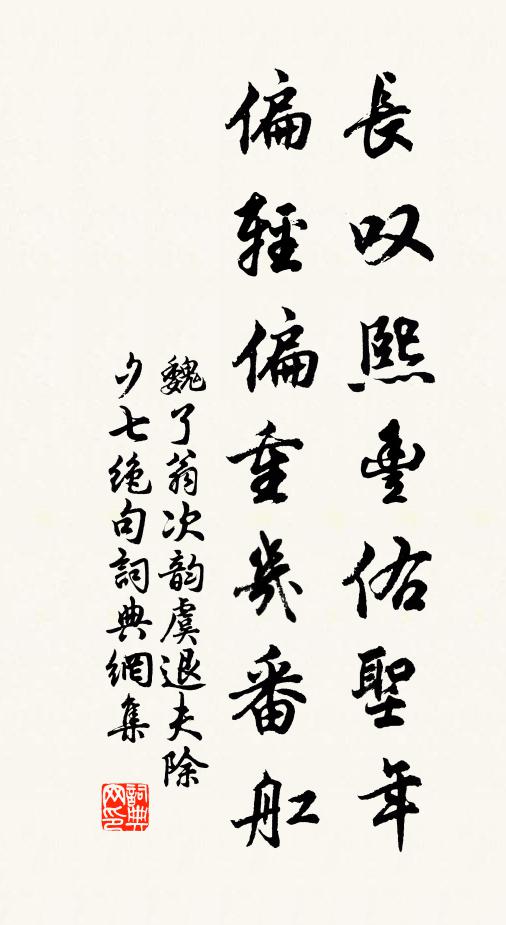 長叹熙豐佑聖年
偏輕偏重幾番舡
魏了翁次韵虞退夫除
夕七绝句詞典網集
詞典网印